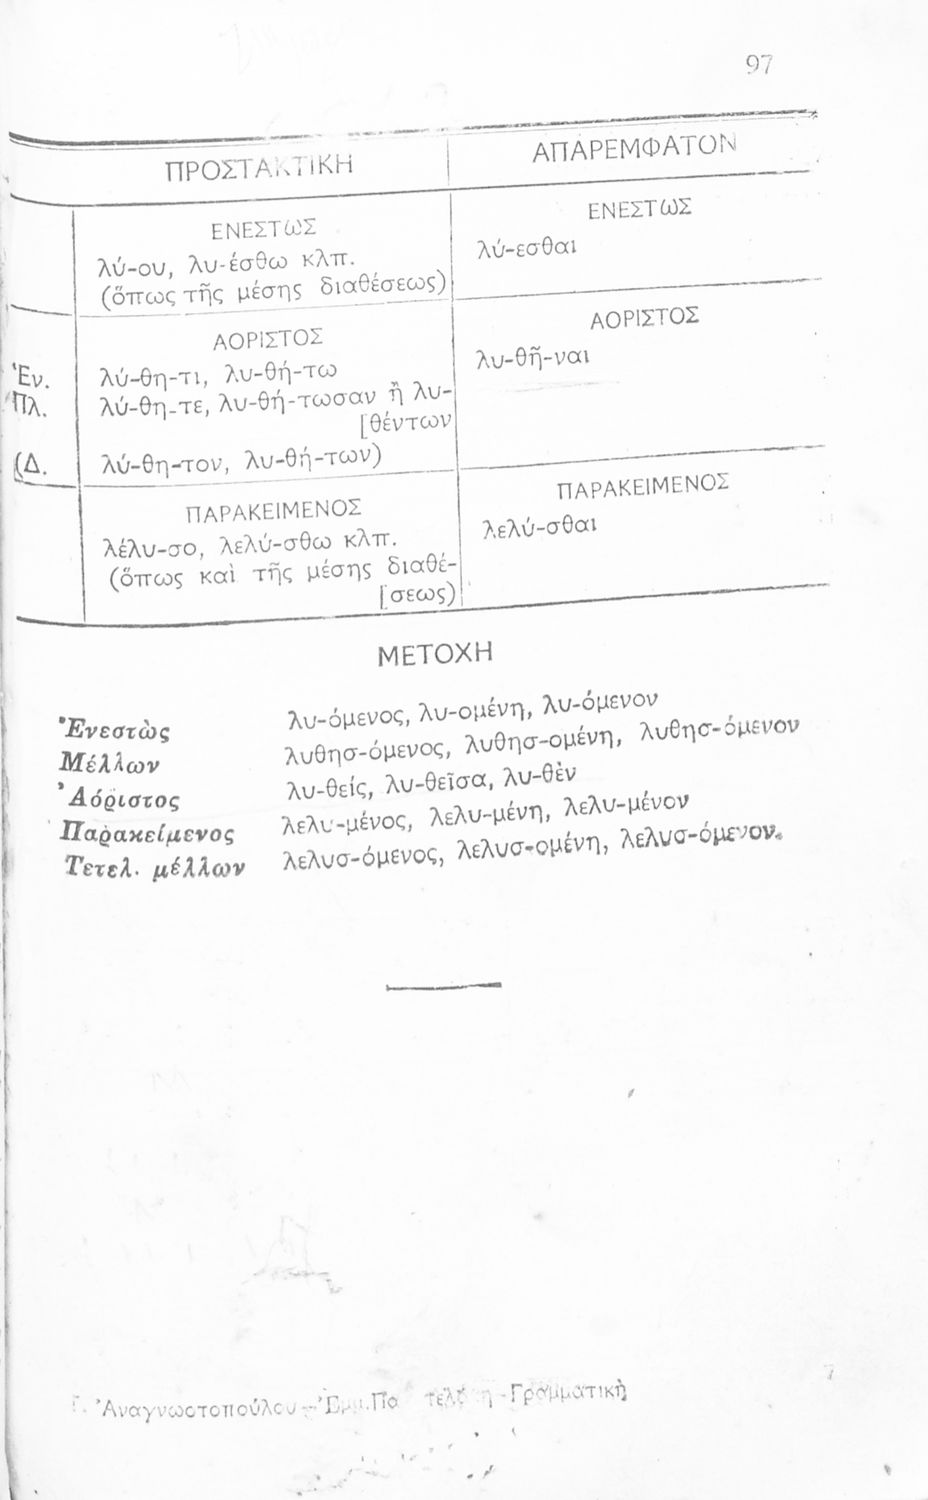 97
ΠΡΟΣΤΑΚΤΙΚΗ ΑΠΑΡΕΜΦΑΤΟΝ
ΕΝΕΣΤΩΣ
λύ-ου, λυ-έσθω κλπ.
(ὅπως τῆς μέσης διαθέσεως)
ΕΝΕΣΤΩΣ
λύ-εσθαι
ΑΟΡΙΣΤΟΣ
Ἑν. λύ-θη-τι, λυ-θή-τω
Πλ. λύ-θη-τε, λυ-θή-τωσαν ἢ λυ-
[θέντων
(Δ. λύ-θη-τον, λυ-θή-των)
ΑΟΡΙΣΤΟΣ
λυ-θῆ-ναι
ΠΑΡΑΚΕΙΜΕΝΟΣ
λέλυ-σο, λελύ-σθω κλπ.
(ὅπως καὶ τῆς μέσης διαθέ-
[σεως)
ΠΑΡΑΚΕΙΜΕΝΟΣ
λελύ-σθαι
ΜΕΤΟΧΗ
Ἐνεστὼς λυ-όμενος, λυ-ομένη, λυ-όμενον
Μέλλων λυθησ-όμενος, λυθησ-ομένη, λυθησ-όμενον
Ἀόριστος λυ-θείς, λυ-θεῖσα, λυ-θὲν
Παρακείμενος λελυ-μένος, λελυ-μένη, λελυ-μένον
Τετελ. μέλλων λελυσ-όμενος, λελυσ-ομένη, λελυσ-όμενον.
Ἀναγνωστοπούλου - Ἐμμ. - Γραμματικὴ
7